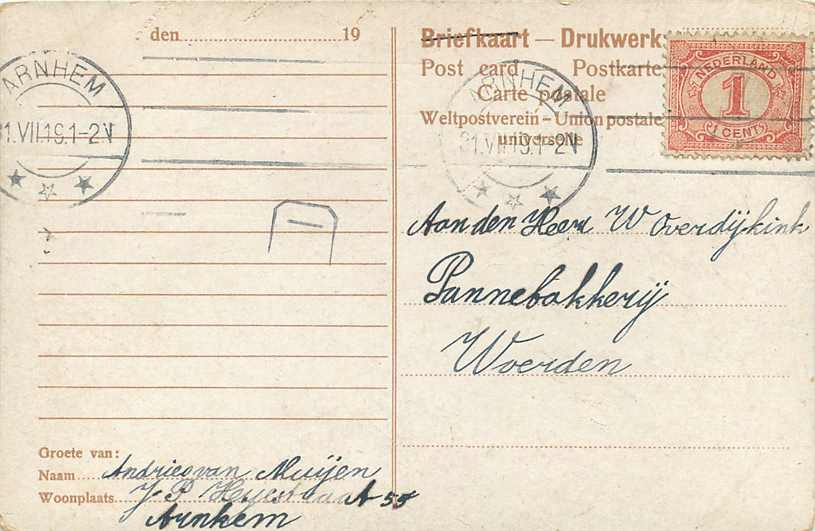 den 19
ARNHEM
31.VII.19.1-2N
Groete van:
Naam Andries van Muijen
Woonplaats J P Heyestraat A 55
Arnhem
Briefkaart — Drukwerk
Post card Postkarte
Carte postale
Weltpostverein - Union postale
universelle
ARNHEM
31.VII.19.1-2N
NEDERLAND
1
1 CENT
Aan den Heer W Overdijkink
Pannebakkerij
Woerden